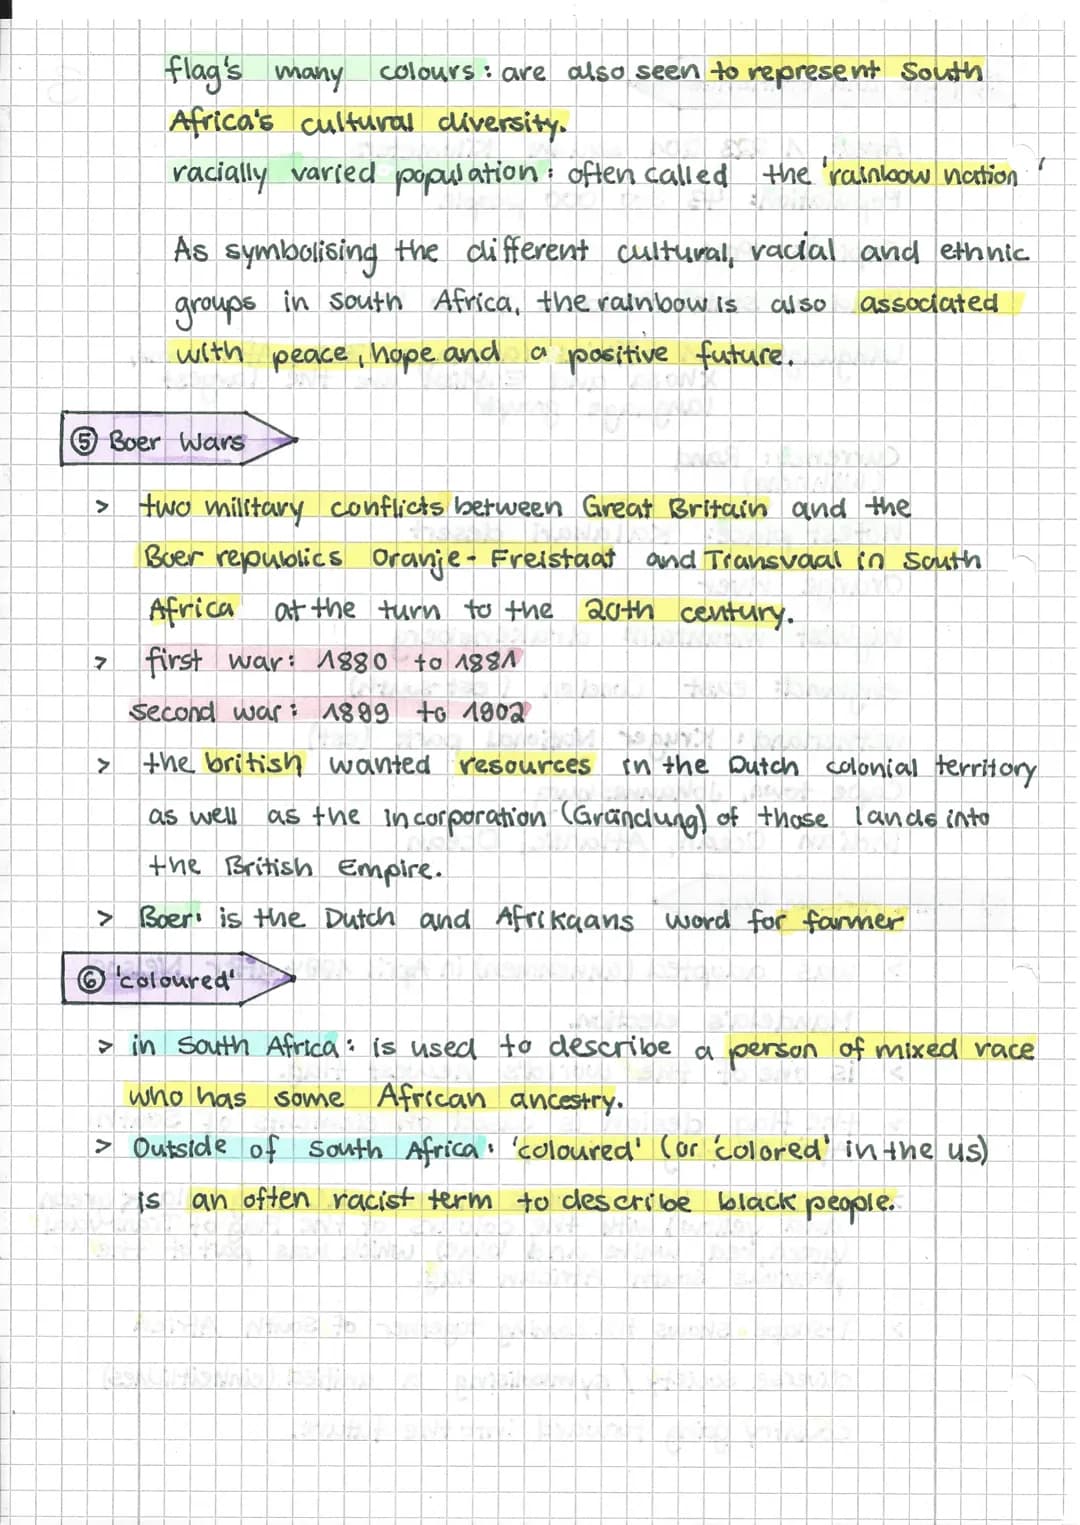 flag's many colours: are also seen to represent South
Africa's cultural diversity.
racially varied population: often called the 'rainbow nation'
As symbolising the different cultural, racial and ethnic
groups in South Africa, the rainbow is also associated
with peace, hope and a positive future.
⑤ Boer Wars
> two military conflicts between Great Britain and the
Boer republics Oranje-Freistaat and Transvaal in South
Africa at the turn to the 20th century.
> first war: 1880 to 1881
second war: 1899 to 1902
> the british wanted resources in the Dutch colonial territory
as well as the incorporation (Gründung) of those lands into
the British Empire.
> Boer: is the Dutch and Afrikaans word for farmer
⑥ 'coloured'
> in South Africa: is used to describe a person of mixed race
who has some African ancestry.
> Outside of South Africa: 'coloured' (or 'colored' in the us)
is an often racist term to describe black people.